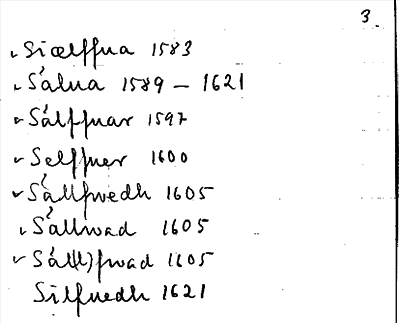 3.
Siælffua 1583
Sálua 1589 – 1621
Sálffuar 1597
Selffuer 1600
Sállfwedh 1605
Sállwad 1605
Sál(l)fwad 1605
Silfuedh 1621